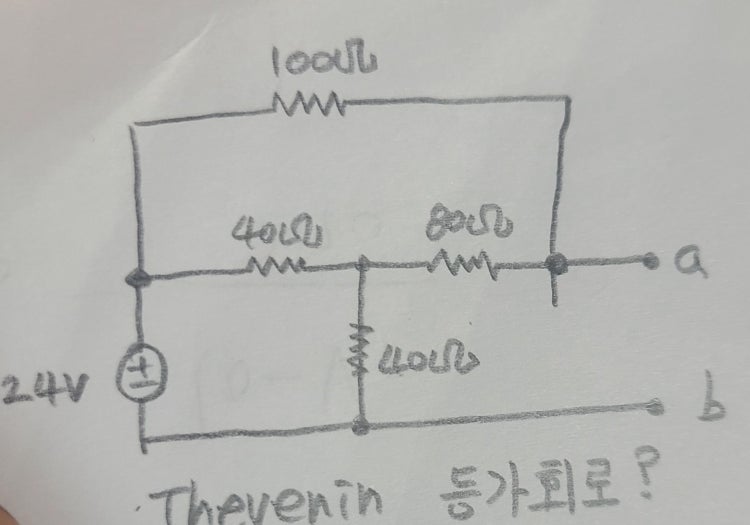 100Ω
40Ω
80Ω
a
24V
±
40Ω
b
Thevenin 등가회로?